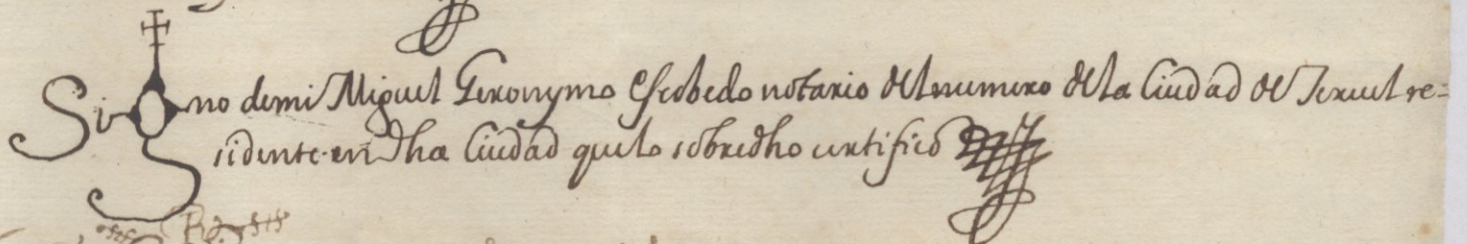 Signo de mi Miguel Geronymo Escobedo notario del numero de la Ciudad de Teruel re=
sidente en dha Ciudad que lo sobredho certifico